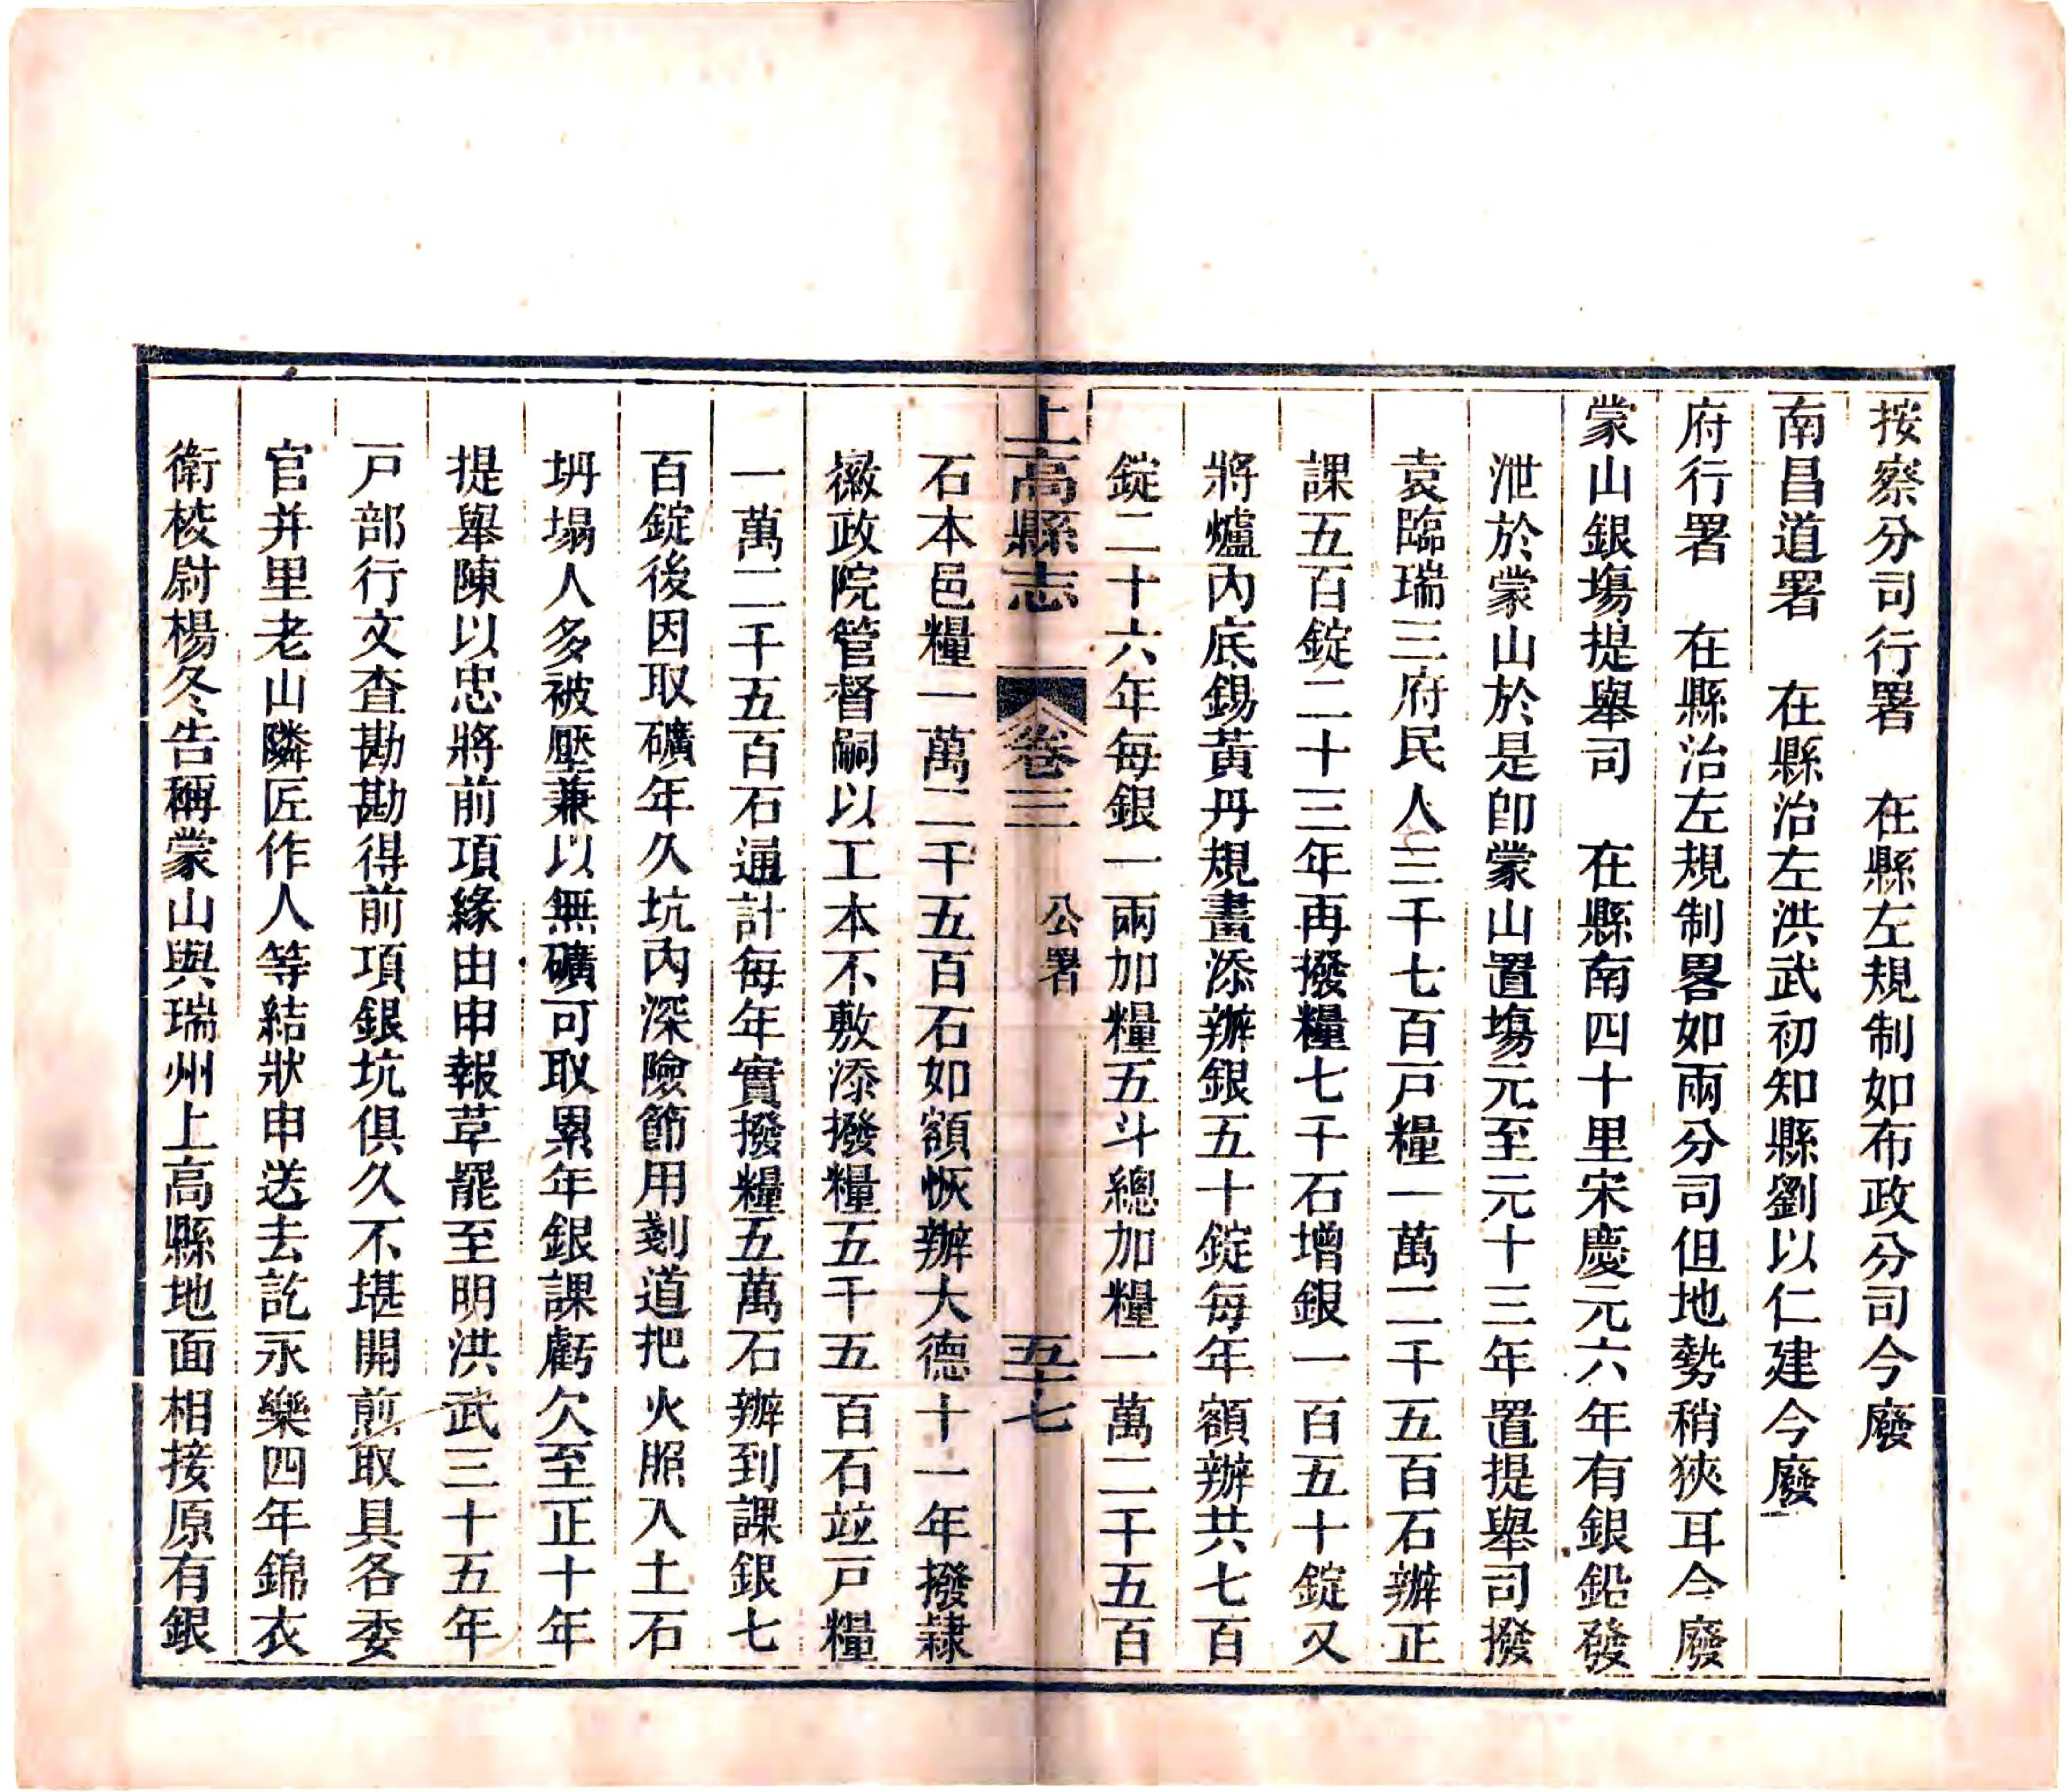 按察分司行署　在縣左規制如布政分司今廢
南昌道署　在縣治左洪武初知縣劉以仁建今廢
府行署　在縣治左規制畧如兩分司但地勢稍狹耳今廢
蒙山銀塲提舉司　在縣南四十里宋慶元六年有銀鉛發
泄於蒙山於是卽蒙山置塲元至元十三年置提舉司撥
袁臨瑞三府民人三千七百戸糧一萬二千五百石辦正
課五百錠二十三年再撥糧七千石增銀一百五十錠又
將爐內底錫黃丹規畫添辦銀五十錠每年額辦共七百
錠二十六年每銀一兩加糧五斗總加糧一萬二千五百
上高縣志　卷三　公署　五十七
石本邑糧一萬二千五百石如額恢辦大德十一年撥隸
徽政院管督嗣以工本不敷添撥糧五千五百石竝戸糧
一萬二千五百石通計每年實撥糧五萬石辦到課銀七
百錠後因取礦年久坑內深險節用剗道把火照入土石
坍塌人多被壓兼以無礦可取累年銀課虧欠至正十年
提舉陳以忠將前項緣由申報革罷至明洪武三十五年
戸部行文查勘勘得前項銀坑俱久不堪開煎取具各委
官并里老山隣匠作人等結狀申送去訖永樂四年錦衣
衛校尉楊冬告稱蒙山與瑞州上高縣地面相接原有銀